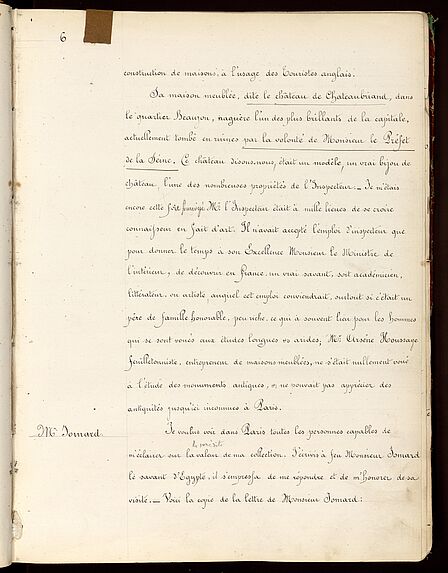 6
construction de maisons, à l'usage des Touristes anglais.
Sa maison meublée, dite le château de Chateaubriand, dans
le quartier Beaujon, naguère l'un des plus brillants de la capitale,
actuellement tombé en ruines par la volonté de Monsieur le Préfet
de la Seine. Ce château disons-nous, était un modèle, un vrai bijou de
château, l'une des nombreuses propriétés de l'Inspecteur. — Je n'étais
encore cette fois Mr l'Inspecteur était à mille lieues de se croire
connaisseur en fait d'art. Il n'avait accepté l'emploi d'inspecteur que
pour donner le temps à son Excellence Monsieur le Ministre de
l'intérieur, de découvrir en france un vrai savant, soit academicien,
littérateur ou artiste auquel cet emploi conviendrait, surtout si c'était un
père de famille honorable, peu riche, ce qui à souvent lieu pour les hommes
qui se sont voués aux études longues et arides, Mr Arsène Houssaye
feuilletonniste, entrepreneur de maisons meublées, ne s'était nullement voué
à l'étude des monuments antiques, et ne pouvait pas apprécier des
antiquités jusqu'ici inconnues à Paris.
Mr Jomard
Je voulus voir dans Paris toutes les personnes capables de
m'éclairer sur la valeur de ma collection. J'écrivis à feu Monsieur Jomard
le savant d'Egypte, il s'empressa de me répondre et de m'honorer de sa
visite. — Voici la copie de la lettre de Monsieur Jomard: